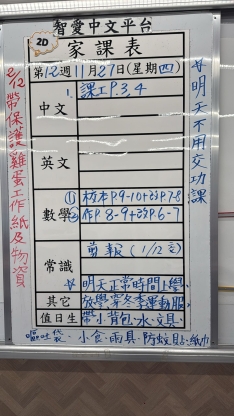 智愛中文平台
2D
家課表
第12週11月27日(星期四)
中文
1. 課工P.3,4
英文
數學
① 材本P.9-10+
②作P.8-9+
常識
剪報(1/12交)
☆明天正常時間上學、
其它
放學穿冬季運動服,
值日生
帶小背包、水、文具、
小食、雨具、防蚊貼、紙巾
☆明天不用交功課
2/12帶保護雞蛋工作紙及物資